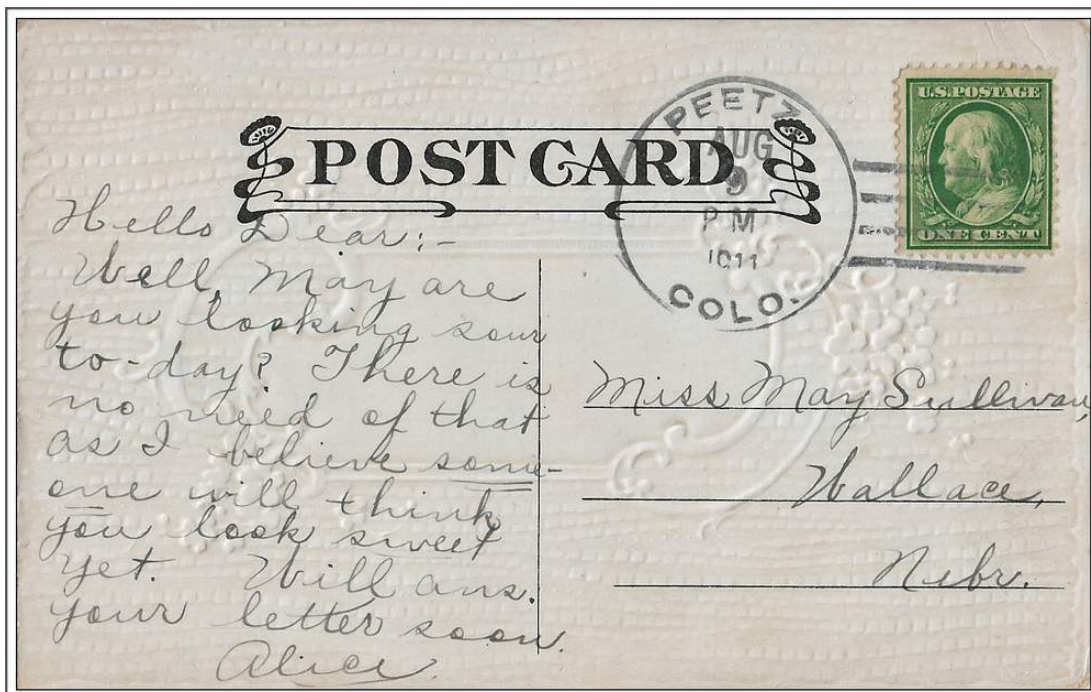 POST CARD
PEETZ
AUG
9
P M
1911
COLO.
U.S. POSTAGE
ONE CENT
Hello Dear:-
Well, May are
you looking sour
to-day? There is
no need of that
as I believe some-
one will think
you look sweet
yet. Will ans.
your letter soon.
Alice.
Miss May Sullivan,
Wallace,
Nebr.